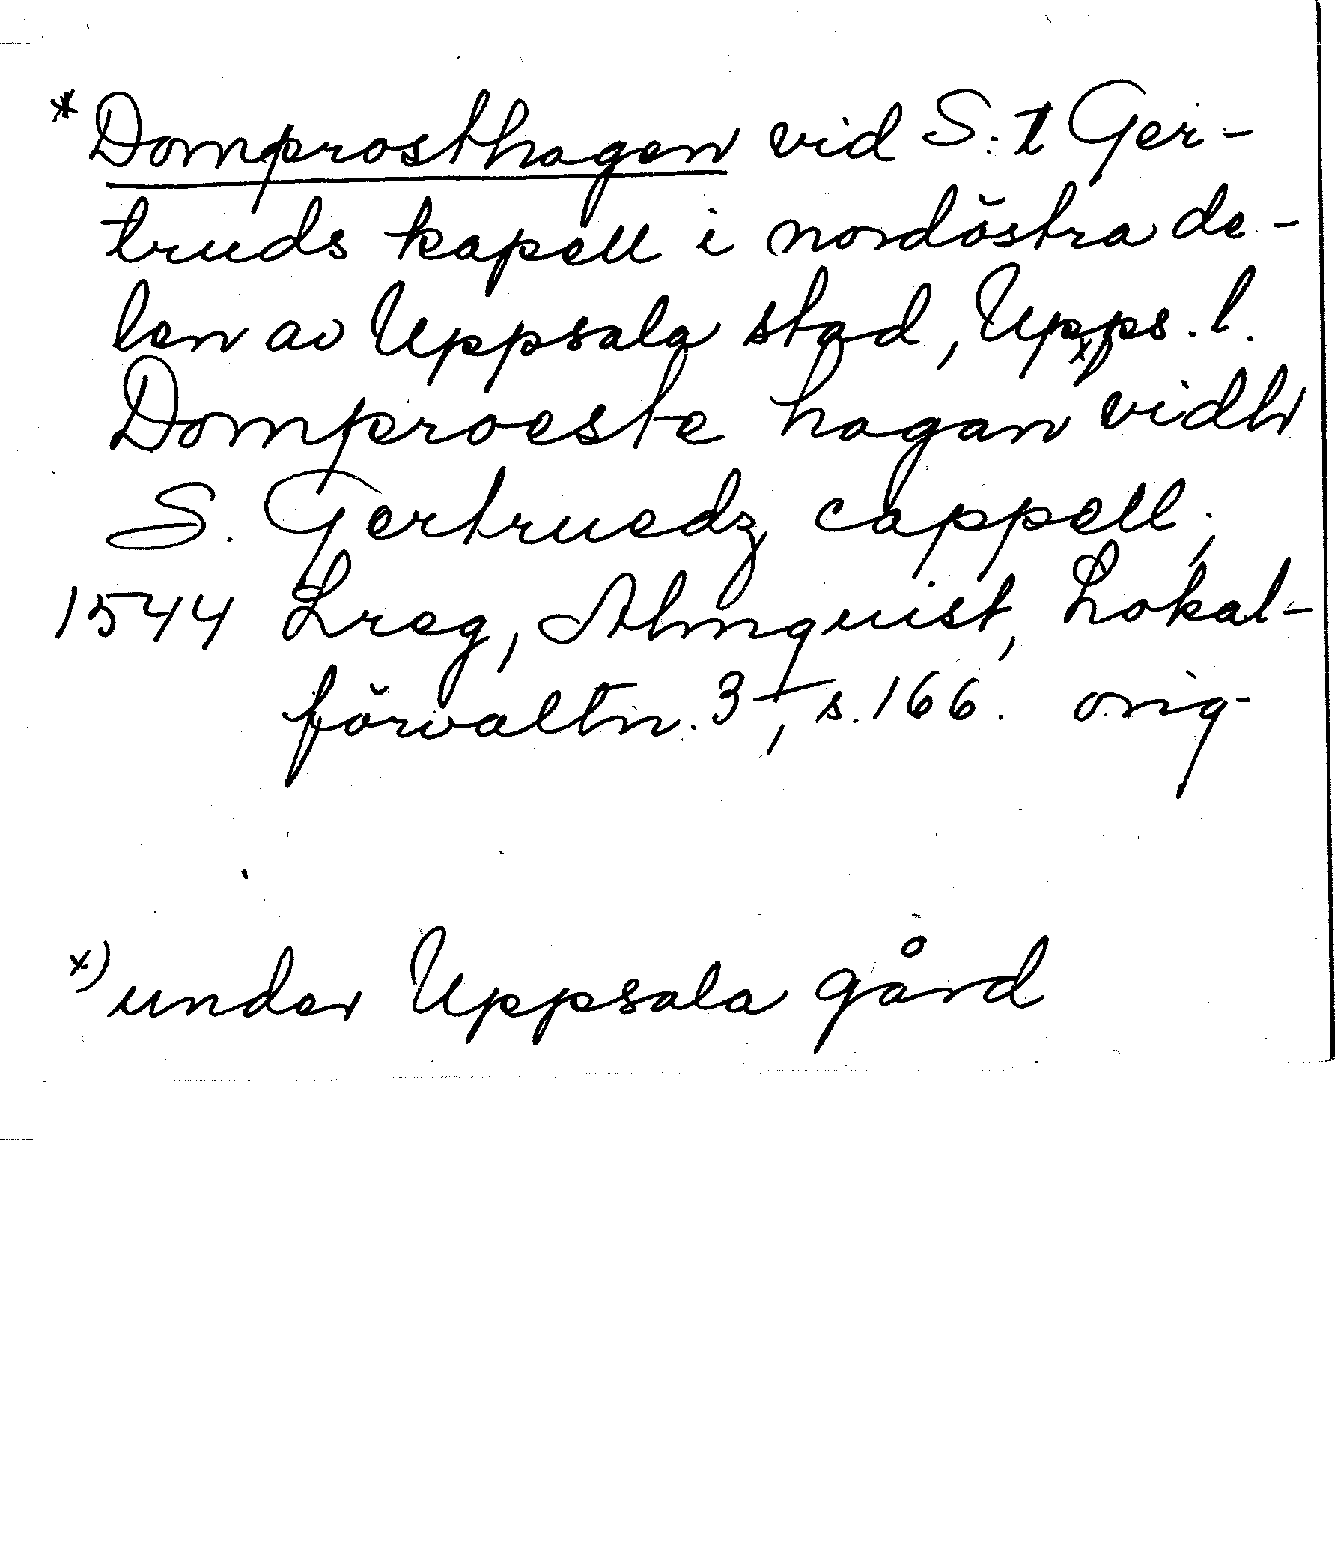 * Domprosthagen vid S:t Ger-
truds kapell i nordöstra de-
len av Uppsala stad, Upps. l.
Domproeste hagan vidh
S. Gertruedz cappell,
1544 Lreg, Almquist, Lokal-
förvaltn. 3, s. 166. orig
x) under Uppsala gård